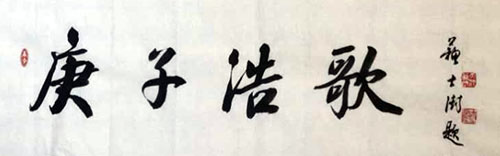 庚子浩歌
苏士澍题